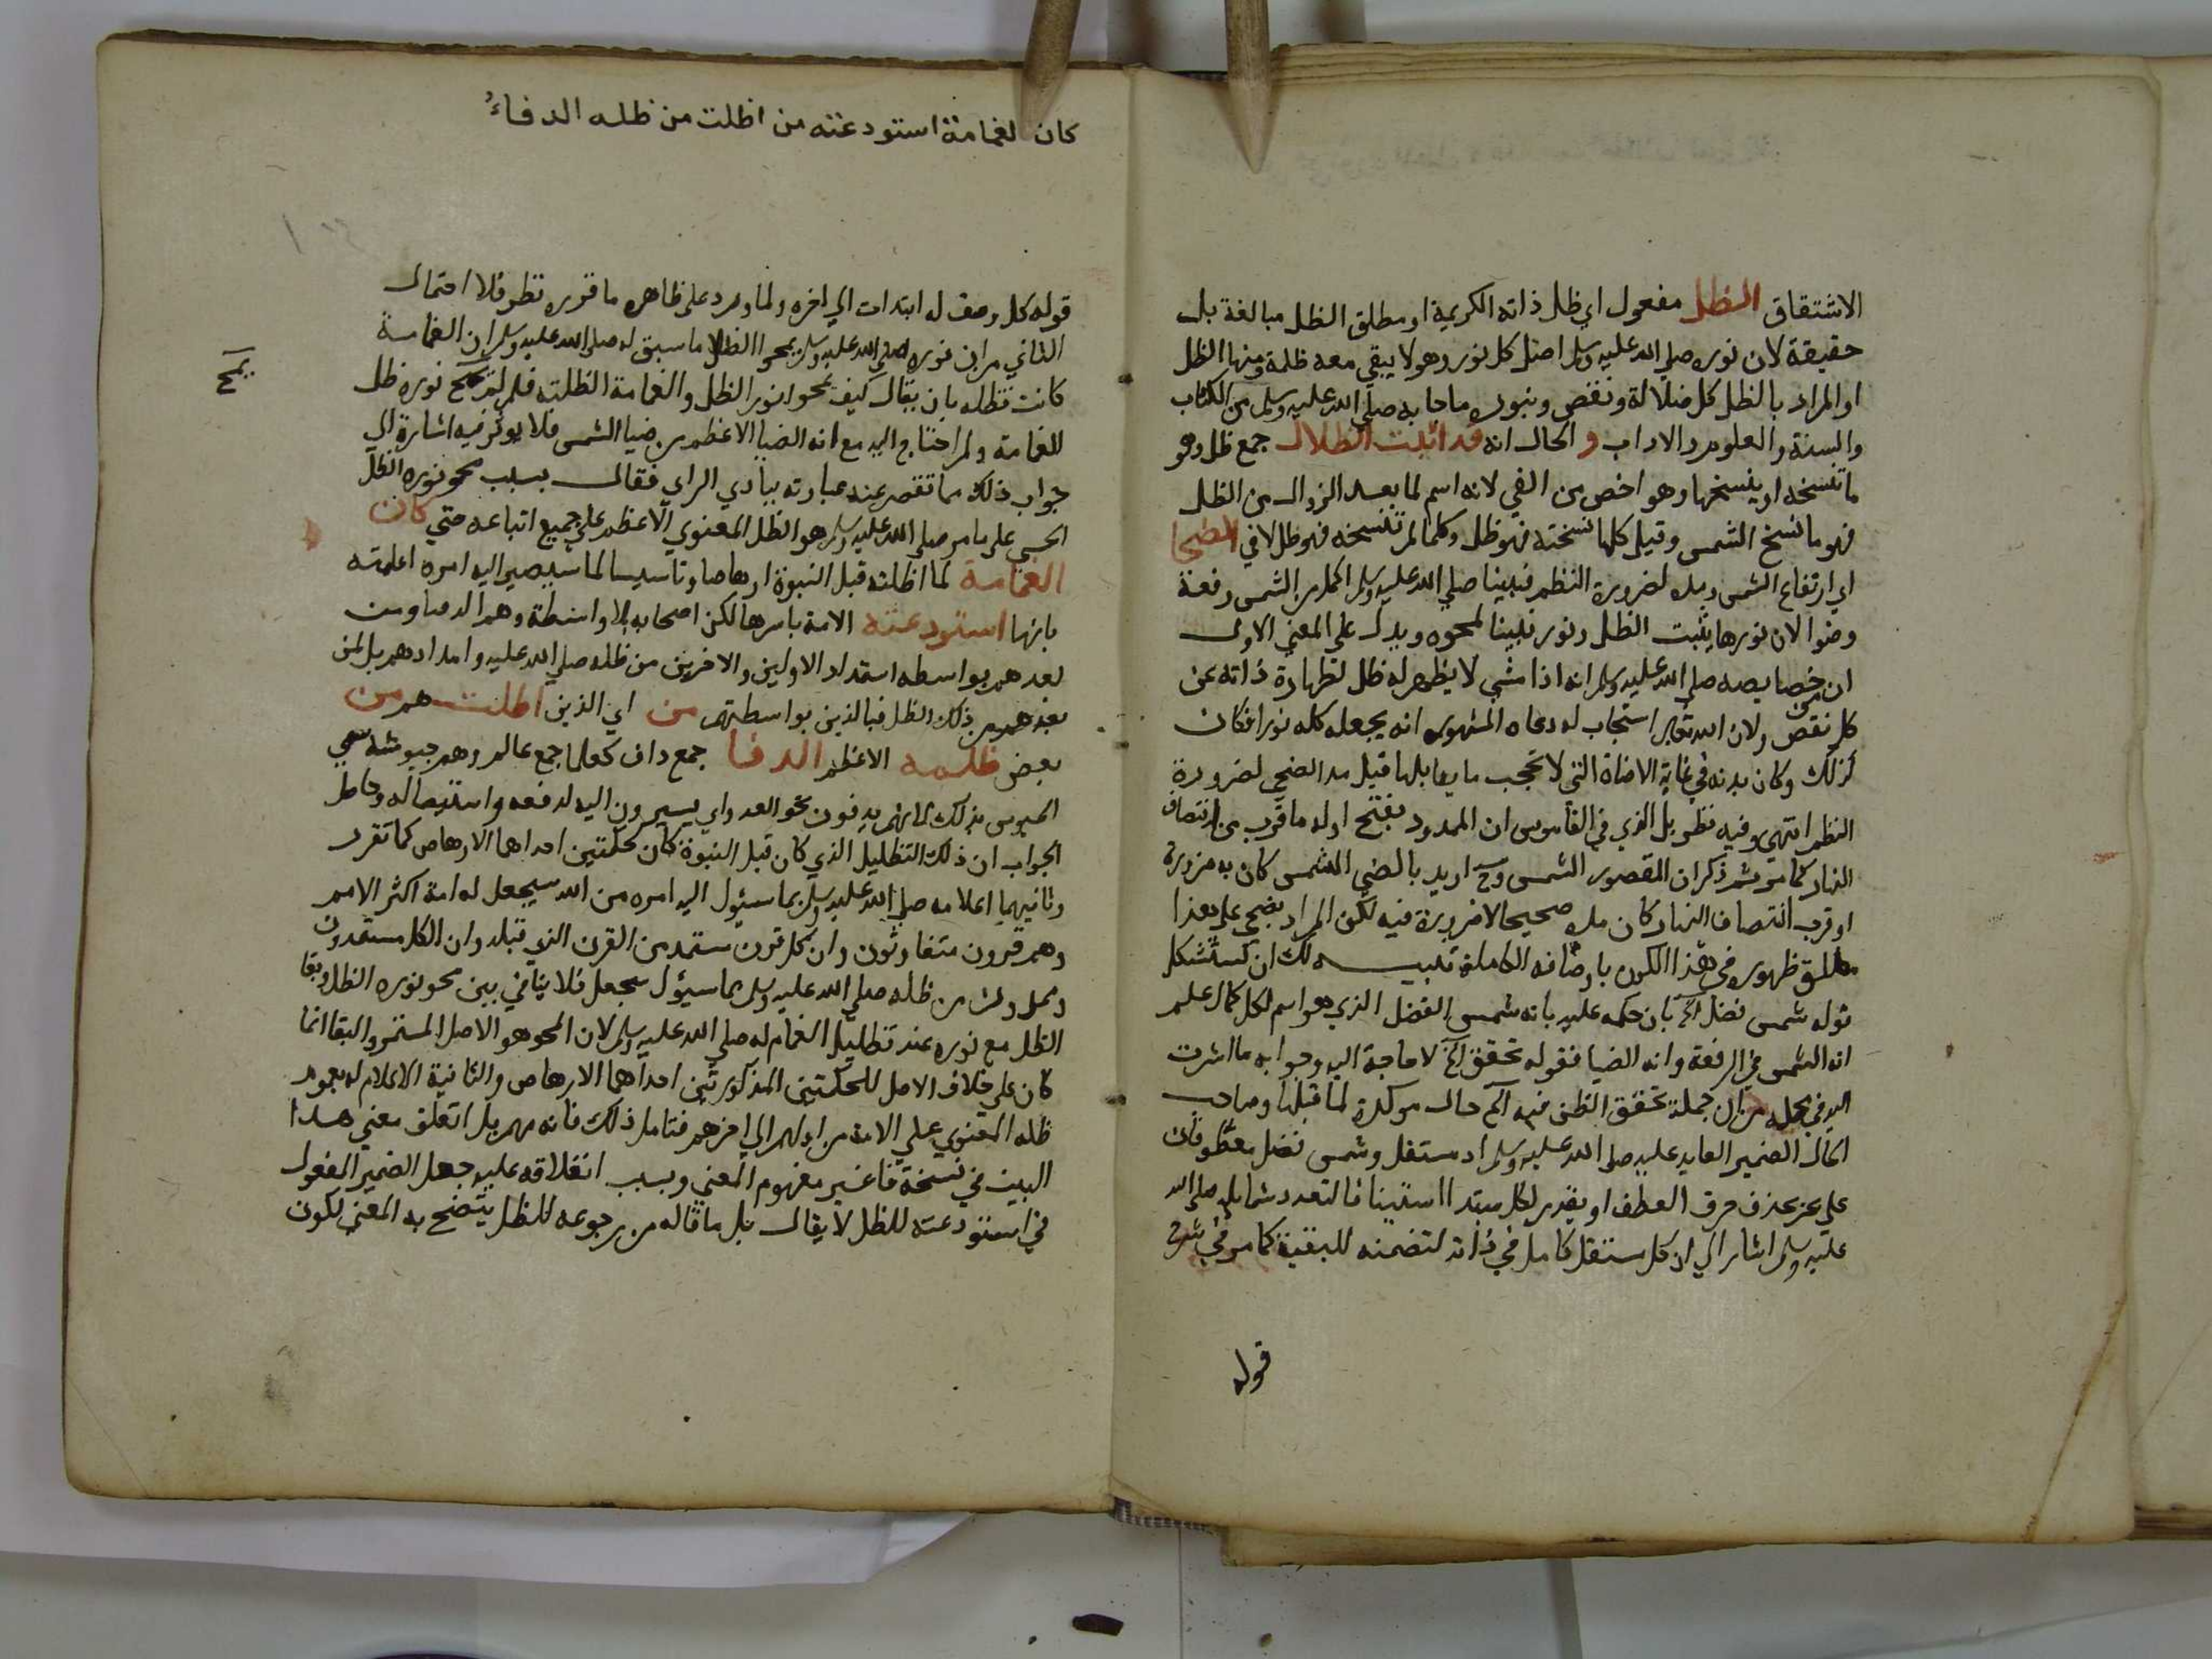 الاشتقاق الظل مفعول اي ظل ذاته الكريمة او مطلق الظل مبالغة بل
حقيقة لان نوره صلي الله عليه وسلم اصل كل نور وهو لا يبقي معه ظلمة ومنها الظل
او المراد بالظل كل ضلالة ونقص وبنوره ماحا به صلي الله عليه وسلم من الكتاب
والسنة والعلوم والاداب و الحال انه قد اثبت الظلال جمع ظل وهو
ما تنسخه او ينسخها وهو اخص من الفي لانه اسم لما بعد الزوال من الظل
فهو ما نسخ الشمس وقيل كلما نسخته فهو ظل وكلما لم تنسخه فهو ظل لا في الضحا
اي ارتفاع الشمس ومده لضرورة النظم فنبينا صلي الله عليه وسلم اكمل من الشمس رفعة
وضوا لان نورها يثبت الظل ونور نبينا يمحوه ويدل علي المعني الاول
ان من خصايصه صلي الله عليه وسلم انه اذا مشي لا يظهر له ظل لطهارة ذاته عن
كل نقص ولان الله تعالى استجاب له دعاه المشهور انه يجعله كله نورا فكان
كذلك وكان بدنه في غاية الاضاة التي لا تحجب ما يقابلها قيل مد الضحي لضرورة
النظم انتهي وفيه نظر بل الذي في القاموس ان الممدود بفتح اوله ما قرب من انتصاف
النهار كما مر ثم ذكر ان المقصور الشمس وح اريد بالضحي الشمس كان به ضرورة
او قرب انتصاف النهار كان مده صحيحا لا ضرورة فيه لكن المراد بضحي علي هذا
مطلق ظهوره في هذا الكون باوصافه الكاملة تنبيه لك ان تستشكل
قوله شمس فضل الخ بان حكمه عليه بانه شمس الفضل الذي هو اسم لكل كمال علم
انه الشمس في الرفعة وانه الضيا فقوله تحقق الخ لا حاجة اليه وجوابه ما اشرت
اليه في محله من ان جملة تحقق الظن فيه الخ حال موكدة لما قبلها وصاحب
الحال الضمير العايد عليه صلي الله عليه وسلم او مستقل وشمس فضل معطوفان
علي بحر بحذف حرف العطف او يقدر لكل مبتدا استينافا لتعدد شمايله صلي الله
عليه وسلم اشار الي ان كل مستقل كامل في ذاته لتضمنه للبقية كما مر في شرح
قوله
كان الغمامة استودعته من اظلت من ظله الدفاءُ
قوله كل وصف له ابتدات الي اخره ولما ورد علي ظاهره ما قرره نظر فلا احتمال
الثاني من ان نوره صلي الله عليه وسلم يمحوا الظل ما سبق له صلي الله عليه وسلم ان الغمامة
كانت تظله بان يقال كيف يمحوا نور الظل والغمامة اظلته فلم لم يمح نوره ظل
الغمامة ولم احتاج اليه مع انه الضيا الاعظم من ضيا الشمس فلا يوثر فيه اشارة الي
يمح
جواب ذلك مما تقصر عنه عبارته ببادي الراي فقال بسبب محو نوره الظل
الحسي علي ما مر صلي الله عليه وسلم هو الظل المعنوي الاعظم علي جميع اتباعه حتي كان
الغمامة لما اظلته قبل النبوة ارهاصا وتاسيسا لما سيصير اليه امره اعلمته
بانها استودعته الامة باسرها لكن اصحابه بلا واسطة وهم الدفا ومن
بعدهم بواسطه استمداد الاولين والاخرين من ظله صلي الله عليه وامدادهم بل لمن
بعدهم من ذلك الظل فبالذين بواسطتهم من اي الذين اظلت هم من
بعض ظلمه الاعظم الدفا جمع داف كعلما جمع عالم وهم جيوشه سمي
الجيوش بذلك لانهم يدفون نحو العدو اي يسيرون اليه لدفعه واستيصاله وحاصل
الجواب ان ذلك التظليل الذي كان قبل النبوة كان لحكمتين احداهما الارهاص كما تقرر
وثانيهما اعلامه صلي الله عليه وسلم بما سيئول اليه امره من الله سيجعل له امة اكثر الامم
وهم قرون متفاوتون وان كل قرن ستمد من القرن الذي قبله وان الكل مستمدون
من ظله صلي الله عليه وسلم بما سيئول سيجعل فلا ينافي بين محو نوره الظل وبقا
الظل مع نوره عند تظليل الغمام له صلي الله عليه وسلم لان المحو هو الاصل المستمر والبقا انما
كان علي خلاف الاصل للحكمتين المذكورتين احداهما الارهاص والثانية الاعلام له بعموم
ظله المعنوي علي الامة من اولهم الي اخرهم فتامل ذلك فانه مهم بل اتعلق معني هذا
البيت في نسخة فاغير مفهوم المعني وبسبب انغلاقه عليه جعل الضمير المفعول
في استودعته للظل لا يقال بل ما قاله من رجوعه للظل يتضح به المعني لكون